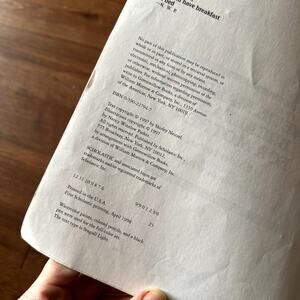 have breakfast
—N. W. P.
No part of this publication may be reproduced in
whole or in part, or stored in a retrieval system, or
transmitted in any form or by any means,
electronic, mechanical, photocopying, recording,
or otherwise, without written permission of the
publisher. For information regarding permission,
write to Greenwillow Books, a division of
William Morrow & Company, Inc., 1350 Avenue
of the Americas, New York, NY 10019.
ISBN 0-590-22794-7
Text copyright © 1997 by Shirley Neitzel
Illustrations copyright © 1997
by Nancy Winslow Parker.
All rights reserved. Published by Scholastic Inc.,
555 Broadway, New York, NY 10012,
by arrangement with Greenwillow Books,
a division of William Morrow & Company, Inc.
SCHOLASTIC and associated logos are
trademarks and/or registered trademarks of
Scholastic Inc.
12 11 10 9 8 7 6
9 0 1 2 3/0
Printed in the U.S.A.
First Scholastic printing, April 1998
Watercolor paints, colored pencils, and a black
pen were used for the full-color art.
The text type is Seagull Light.